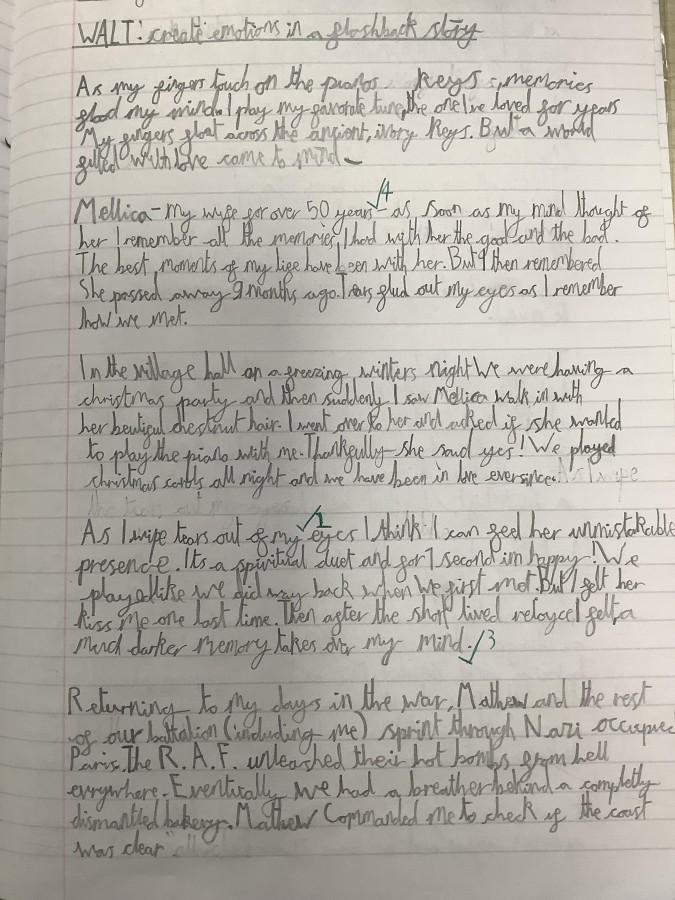 WALT: create emotions in a flashback story
As my fingers touch on the pianos keys, memories
flood my mind. I play my favorate tune, the one I've loved for years
My fingers float across the ancient, ivory keys. But a world
filled with love came to mind
Mellica - my wife for over 50 years - as soon as my mind thought of
her I remember all the memories, I had with her the good and the bad.
The best moments of my life have been with her. But I then remembered
She passed away 9 months ago. Tears out my eyes as I remember
how we met.
In the village hall on a freezing winters night We were having a
christmas party and then suddenly I saw Mellica walk in with
her beutiful chestnut hair. I went over to her and acked if she wanted
to play the piano with me. Thankfully she said yes! We played
christmas carols all night and we have been in love eversince.
As I wipe tears out of my eyes I think I can feel her unmistakable
presence. Its a spiritual duet and for 1 second im happy! We
played like we did way back when We first met. But I felt her
kiss me one last time. Then after the short lived I felt a
much darker memory takes over my mind.
Returning to my days in the war. Mathew and the rest
of our battalion (including me) sprint through Nazi occupied
Paris. The R.A.F. unleashed their hot bombs from hell
evrywhere. Eventically we had a breather behind a completly
dismantled bakery. Mathew Commanded me to check if the coast
was clear